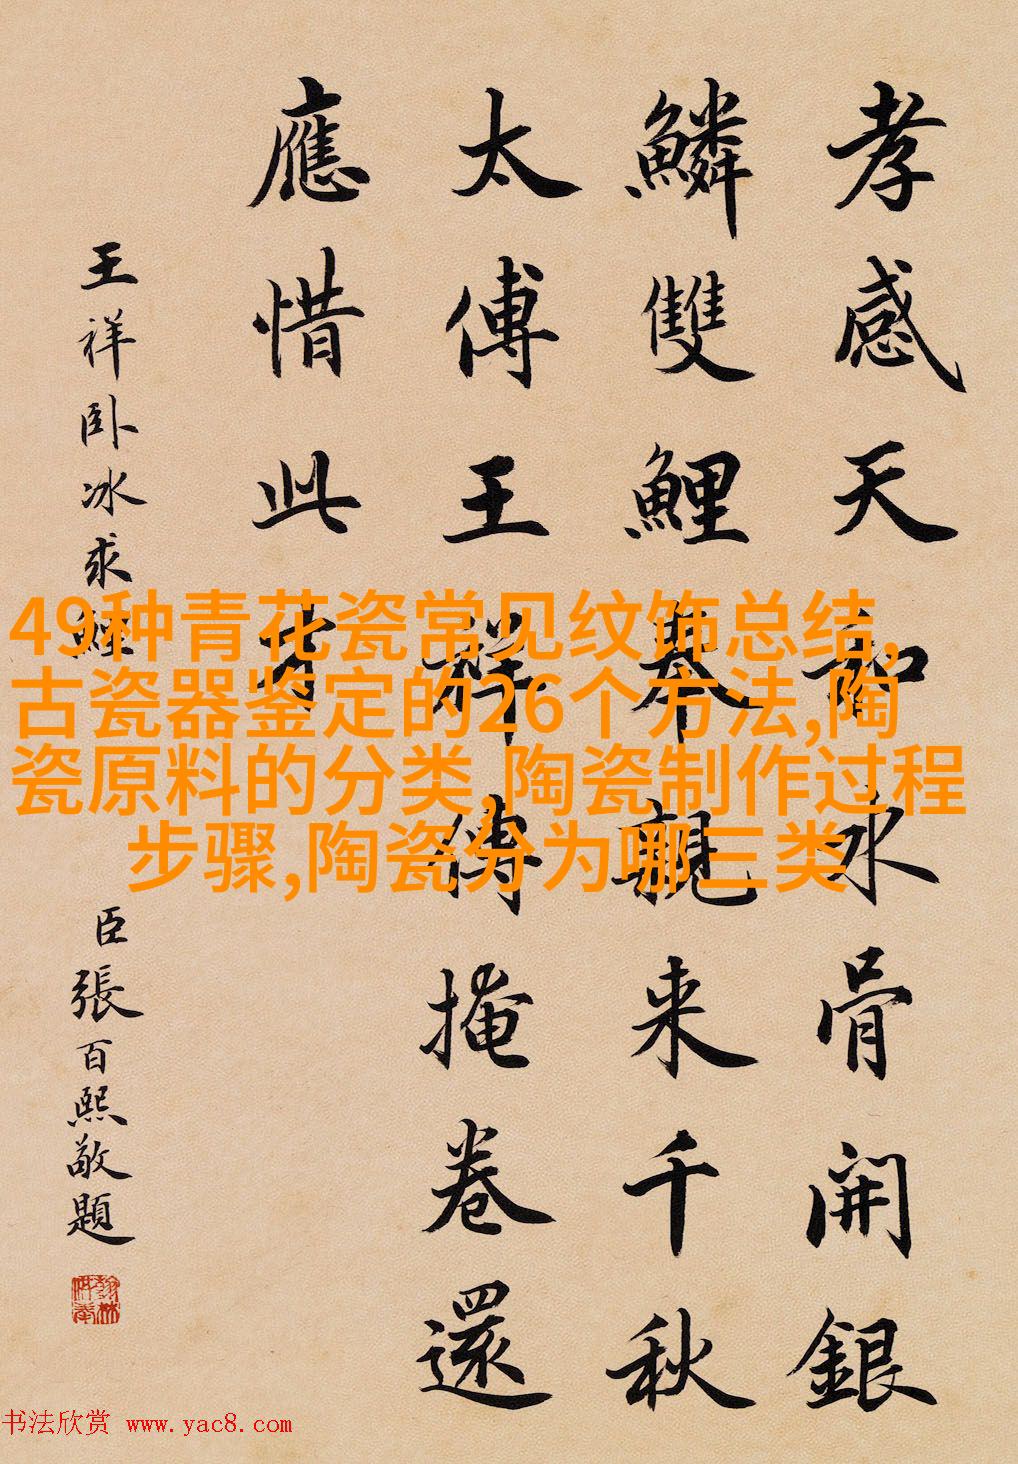 孝感天知氷骨開銀
鱗雙鯉奉親来千秋
太傅王祥傳掩卷還
應惜此才
王祥卧冰求鯉
臣張百熙敬題
翰林供奉
49种青花瓷常见纹饰总结,
古瓷器鉴定的26个方法,陶
瓷原料的分类,陶瓷制作过程
步骤,陶瓷分为哪三类
书法欣赏 www.yac8.com